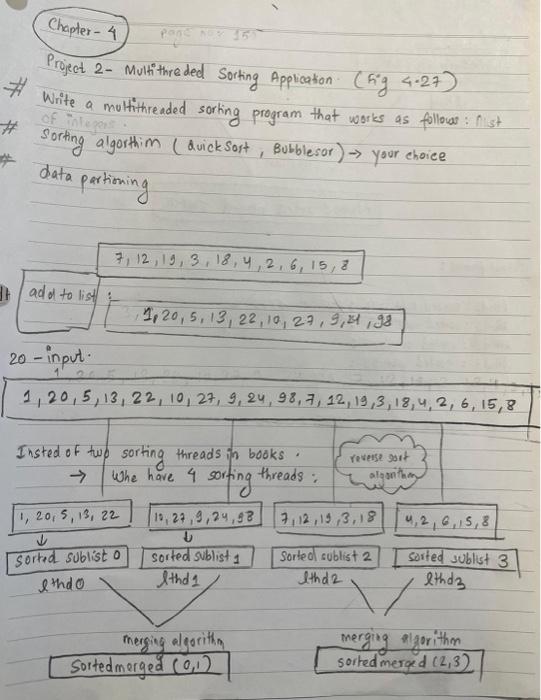 Chapter - 4
page no: 155
Project 2- Multithreaded Sorting Application. (Fig 4.27)
# Write a multithreaded sorting program that works as follows: list
of integers.
# Sorting algorthim (Quick Sort, Bubblesor) → your choice
# data partioning
7, 12, 19, 3, 18, 4, 2, 6, 15, 8
add to list :
1, 20, 5, 13, 22, 10, 27, 9, 24, 98
20 - input.
1, 20, 5, 13, 22, 10, 27, 9, 24, 98, 7, 12, 19, 3, 18, 4, 2, 6, 15, 8
Insted of two sorting threads in books.
→ Whe have 4 sorting threads:
reverse sort
algorithm
1, 20, 5, 13, 22 10, 27, 9, 24, 98 7, 12, 19, 3, 18 4, 2, 6, 15, 8
↓ ↓
sorted sublist 0 sorted sublist 1 sorted sublist 2 sorted sublist 3
lthd0 lthd1 lthd2 lthd3
merging algorithm merging algorithm
Sortedmerged (0,1) sortedmerged (2,3)